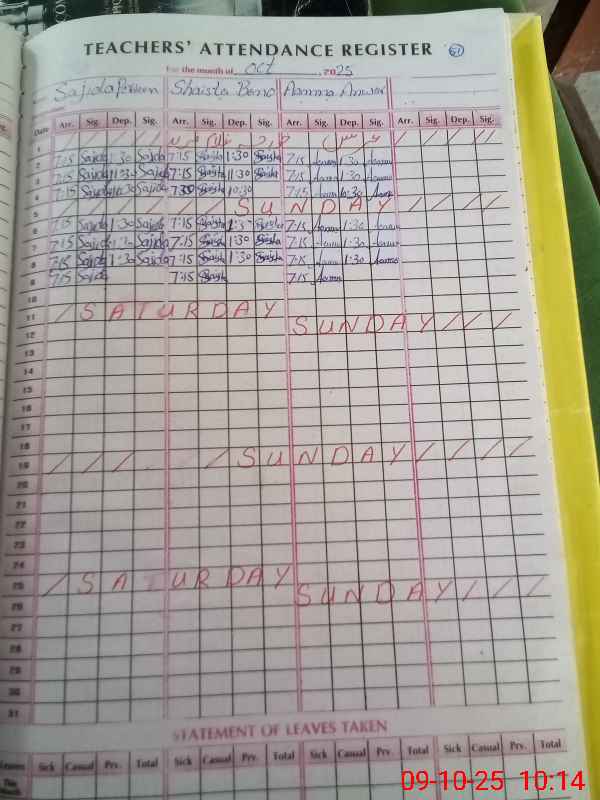 TEACHERS' ATTENDANCE REGISTER 61
For the month of Oct 2025
Sajida Parveen Shaista Bano Aamna Anwar
Date Arr. Sig. Dep. Sig. Arr. Sig. Dep. Sig. Arr. Sig. Dep. Sig. Arr. Sig. Dep. Sig.
1
2 7:15 Sajida 1:30 Sajida 7:15 Shaista 1:30 Shaista 7:15 Aamna 1:30 Aamna
3 7:15 Sajida 11:30 Sajida 7:15 Shaista 11:30 Shaista 7:15 Aamna 11:30 Aamna
4 7:15 Sajida 10:30 Sajida 7:30 Shaista 10:30 7:15 Aamna 10:30 Aamna
5 SUNDAY
6 7:15 Sajida 1:30 Sajida 7:15 Shaista 1:30 Shaista 7:15 Aamna 1:30 Aamna
7 7:15 Sajida 1:30 Sajida 7:15 Shaista 1:30 Shaista 7:15 Aamna 1:30 Aamna
8 7:15 Sajida 1:30 Sajida 7:15 Shaista 1:30 Shaista 7:15 Aamna 1:30 Aamna
9 7:15 Sajida 7:15 Shaista 7:15 Aamna
10
11 SATURDAY
12 SUNDAY
13
14
15
16
17
18
19 SUNDAY
20
21
22
23
24
25 SATURDAY
26 SUNDAY
27
28
29
30
31
STATEMENT OF LEAVES TAKEN
Leaves Sick Casual Prv. Total Sick Casual Prv. Total Sick Casual Prv. Total Sick Casual Prv. Total
This month
09-10-25 10:14